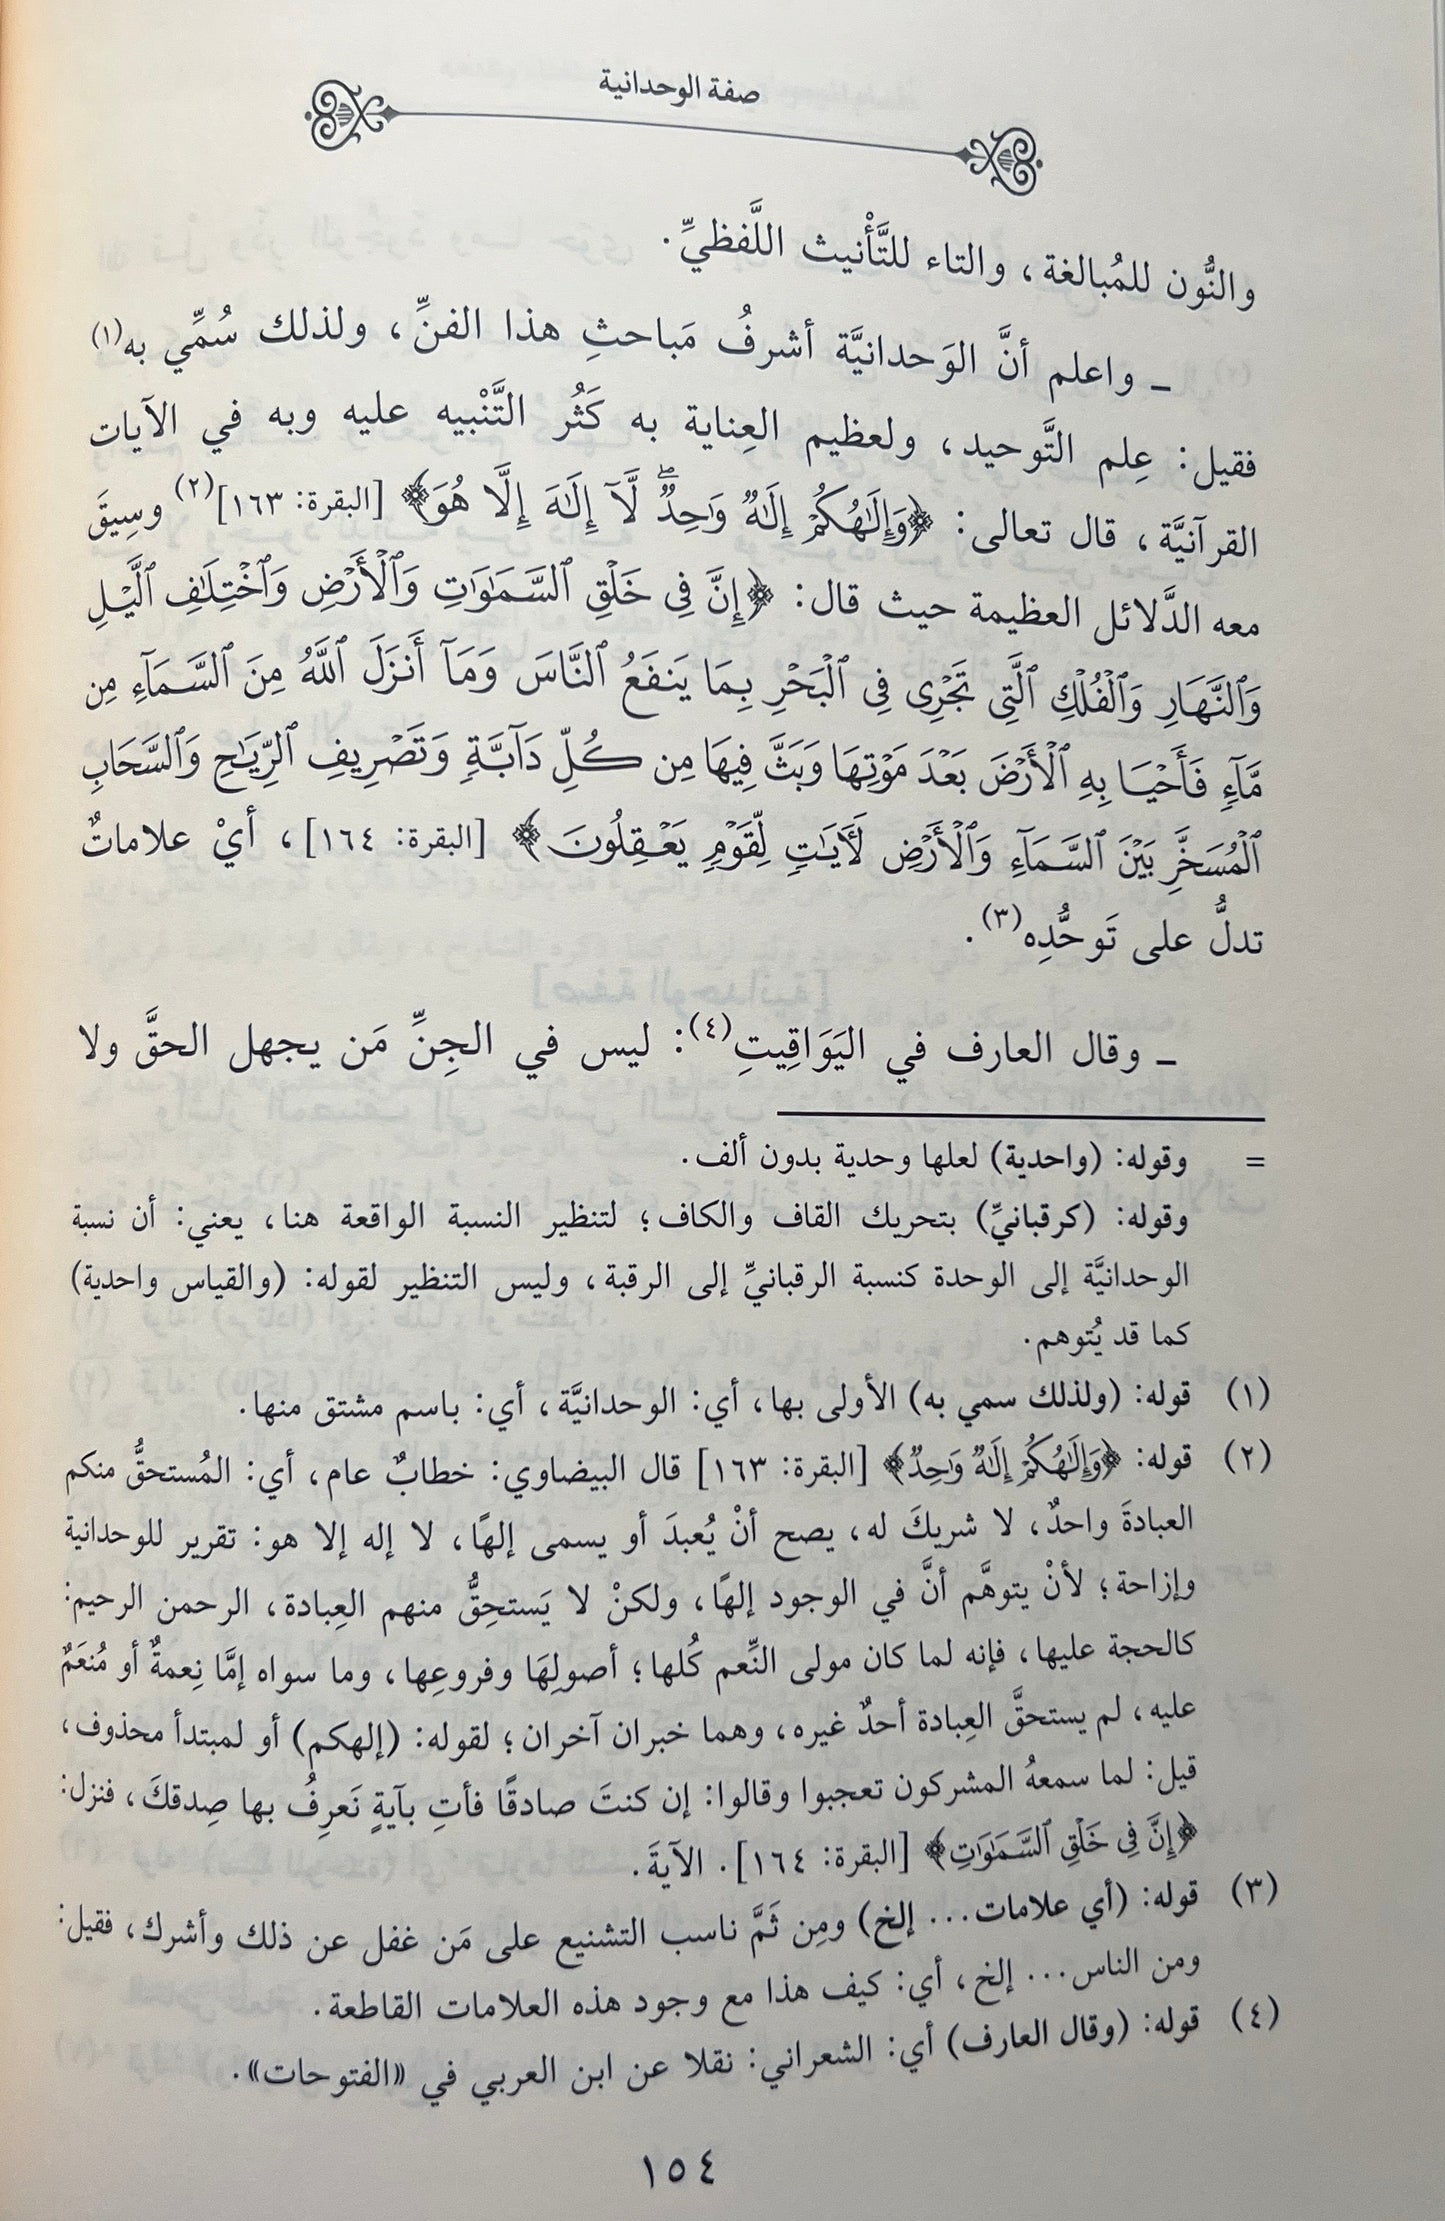 صفة الوحدانية
والنُّون للمُبالغة، والتاء للتَّأْنيث اللَّفظيِّ.
ـ واعلم أنَّ الوَحدانيَّة أشرفُ مَباحثِ هذا الفنِّ، ولذلك سُمِّي به(١)
فقيل: عِلم التَّوحيد، ولعظيم العِناية به كَثُر التَّنْبيه عليه وبه في الآيات
القرآنيَّة، قال تعالى: ﴿وَإِلَٰهُكُمْ إِلَٰهٌ وَٰحِدٌۖ لَّآ إِلَٰهَ إِلَّا هُوَ﴾ [البقرة: ١٦٣](٢) وسِيقَ
معه الدَّلائل العظيمة حيث قال: ﴿إِنَّ فِى خَلْقِ ٱلسَّمَٰوَٰتِ وَٱلْأَرْضِ وَٱخْتِلَٰفِ ٱلَّيْلِ
وَٱلنَّهَارِ وَٱلْفُلْكِ ٱلَّتِى تَجْرِى فِى ٱلْبَحْرِ بِمَا يَنفَعُ ٱلنَّاسَ وَمَآ أَنزَلَ ٱللَّهُ مِنَ ٱلسَّمَآءِ مِن
مَّآءٍ فَأَحْيَا بِهِ ٱلْأَرْضَ بَعْدَ مَوْتِهَا وَبَثَّ فِيهَا مِن كُلِّ دَآبَّةٍ وَتَصْرِيفِ ٱلرِّيَٰحِ وَٱلسَّحَابِ
ٱلْمُسَخَّرِ بَيْنَ ٱلسَّمَآءِ وَٱلْأَرْضِ لَءَايَٰتٍ لِّقَوْمٍ يَعْقِلُونَ﴾ [البقرة: ١٦٤]، أيْ علاماتٌ
تدلُّ على تَوحُّدِه(٣).
ـ وقال العارف في اليَوَاقِيتِ(٤): ليس في الجِنِّ مَن يجهل الحقَّ ولا
= وقوله: (واحدية) لعلها وحدية بدون ألف.
وقوله: (كرقبانيِّ) بتحريك القاف والكاف؛ لتنظير النسبة الواقعة هنا، يعني: أن نسبة
الوحدانيَّة إلى الوحدة كنسبة الرقبانيِّ إلى الرقبة، وليس التنظير لقوله: (والقياس واحدية)
كما قد يُتوهم.
(١) قوله: (ولذلك سمي به) الأولى بها، أي: الوحدانيَّة، أي: باسم مشتق منها.
(٢) قوله: ﴿وَإِلَٰهُكُمْ إِلَٰهٌ وَٰحِدٌ﴾ [البقرة: ١٦٣] قال البيضاوي: خطابٌ عام، أي: المُستحقُّ منكم
العبادةَ واحدٌ، لا شريكَ له، يصح أنْ يُعبدَ أو يسمى إلهًا، لا إله إلا هو: تقرير للوحدانية
وإزاحة؛ لأنْ يتوهَّم أنَّ في الوجود إلهًا، ولكنْ لا يَستحِقُّ منهم العِبادة، الرحمن الرحيم:
كالحجة عليها، فإنه لما كان مولى النِّعم كُلها؛ أصولِهَا وفروعِها، وما سواه إمَّا نِعمةٌ أو مُنعَمٌ
عليه، لم يستحقَّ العِبادة أحدٌ غيره، وهما خبران آخران؛ لقوله: (إلهكم) أو لمبتدأ محذوف،
قيل: لما سمعهُ المشركون تعجبوا وقالوا: إن كنتَ صادقًا فأتِ بآيةٍ نَعرِفُ بها صِدقكَ، فنزل:
﴿إِنَّ فِى خَلْقِ ٱلسَّمَٰوَٰتِ﴾ [البقرة: ١٦٤]. الآيةَ.
(٣) قوله: (أي علامات... إلخ) ومِن ثَمَّ ناسب التشنيع على مَن غفل عن ذلك وأشرك، فقيل:
ومن الناس... إلخ، أي: كيف هذا مع وجود هذه العلامات القاطعة.
(٤) قوله: (وقال العارف) أي: الشعراني: نقلا عن ابن العربي في «الفتوحات».
١٥٤